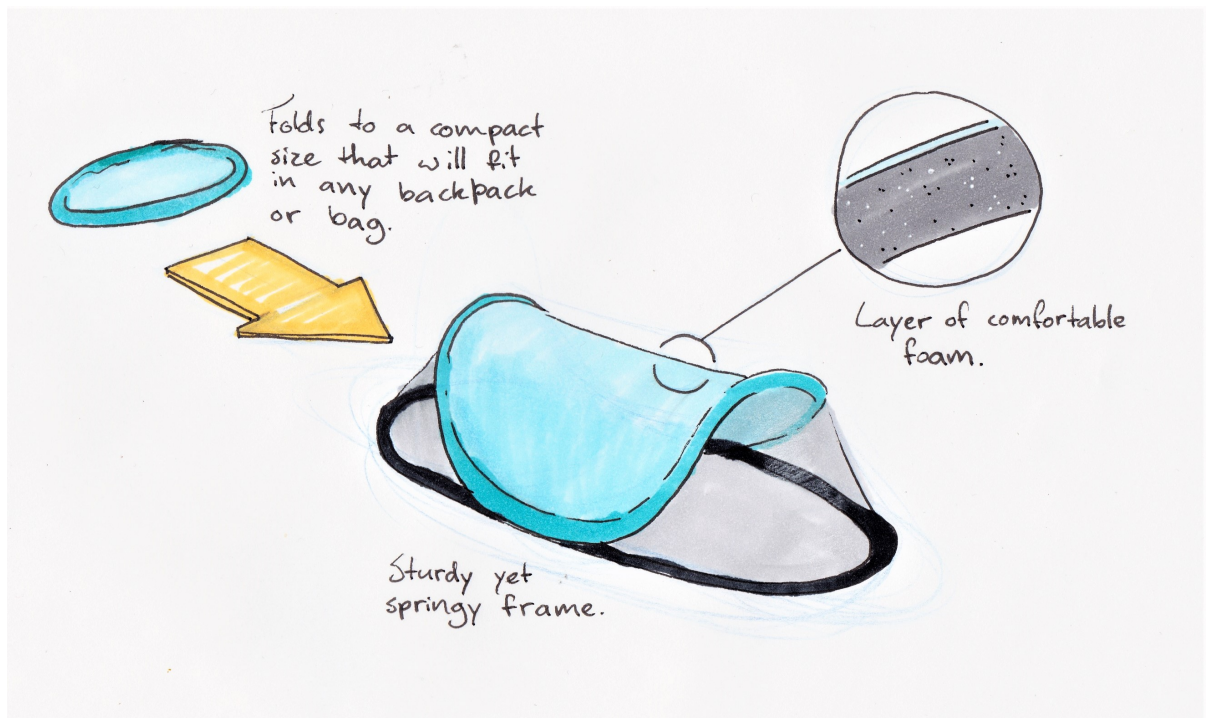 Folds to a compact
size that will fit
in any backpack
or bag.
Layer of comfortable
foam.
Sturdy yet
springy frame.